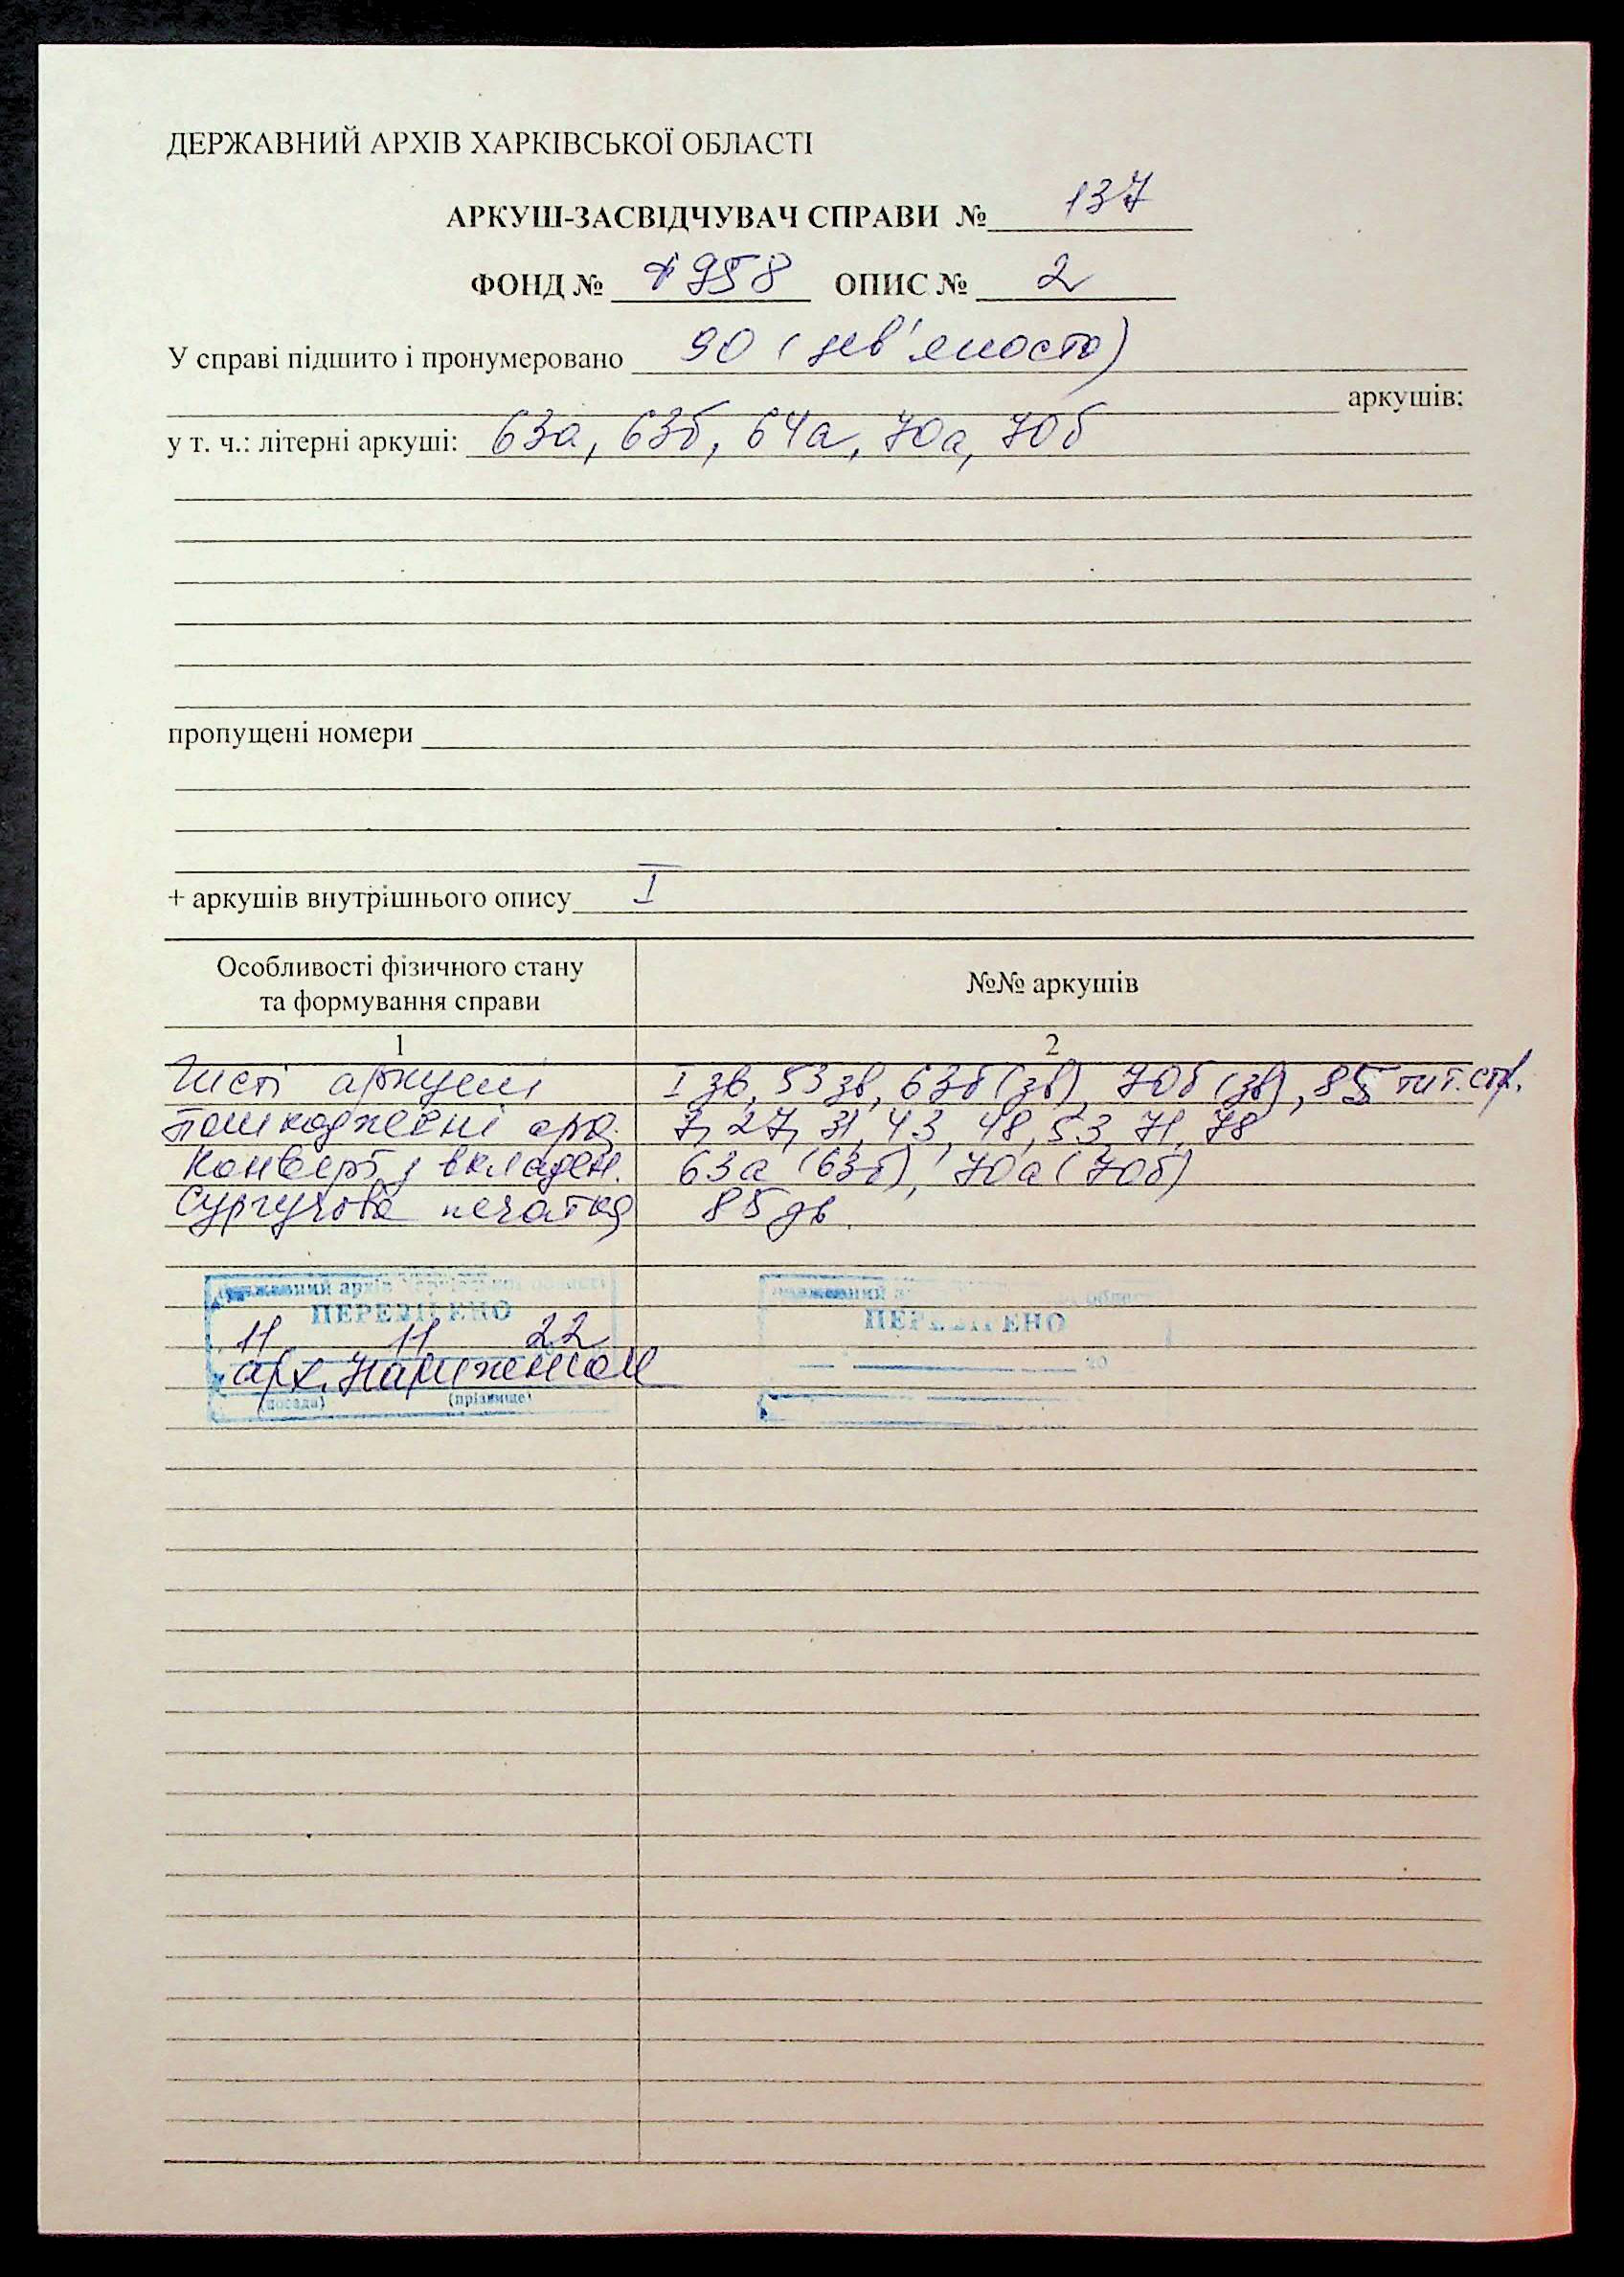 ДЕРЖАВНИЙ АРХІВ ХАРКІВСЬКОЇ ОБЛАСТІ
АРКУШ-ЗАСВІДЧУВАЧ СПРАВИ № 137
ФОНД № 958 ОПИС № 2
У справі підшито і пронумеровано 90 (дев'яносто)
аркушів;
у т. ч.: літерні аркуші: 63а, 63б, 64а, 70а, 70б
пропущені номери
+ аркушів внутрішнього опису I
Особливості фізичного стану
та формування справи
№№ аркушів
1 2
Чисті аркуші I зв, 53 зв, 63б (зв), 70б (зв), 85 тит. стр.
пошкоджені арк. 7, 27, 31, 43, 48, 53, 71, 78
Конверт з вкладен. 63а (63б), 70а (70б)
Сургучова печатка 85 зв.
Державний архів Харківської області
ПЕРЕВІРЕНО ПЕРЕВІРЕНО
11 11 22
20
арх.
(посада) (прізвище)